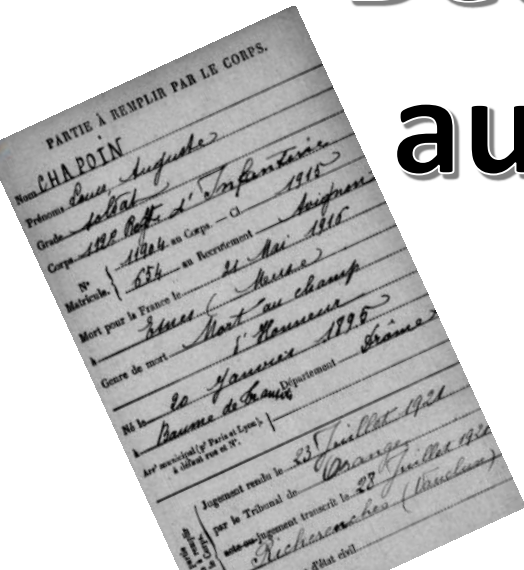 au
PARTIE À REMPLIR PAR LE CORPS.
Nom CHAPOIN
Prénoms Louis, Auguste
Grade soldat
Corps 112e Regt d'Infanterie
N° 11904 au Corps. — Cl 1915
Matricule. 654 au Recrutement Avignon
Mort pour la France le 21 Mai 1916
à Esnes (Meuse)
Genre de mort Mort au champ
d'Honneur
Né le 20 Janvier 1895
à Baume de Transit Département Drôme
Arr' municipal (p' Paris et Lyon),
à défaut rue et N°.
Jugement rendu le 23 Juillet 1921
par le Tribunal de Orange
acte ou jugement transcrit le 28 Juillet 1921
Richerenches (Vaucluse)
d'état civil